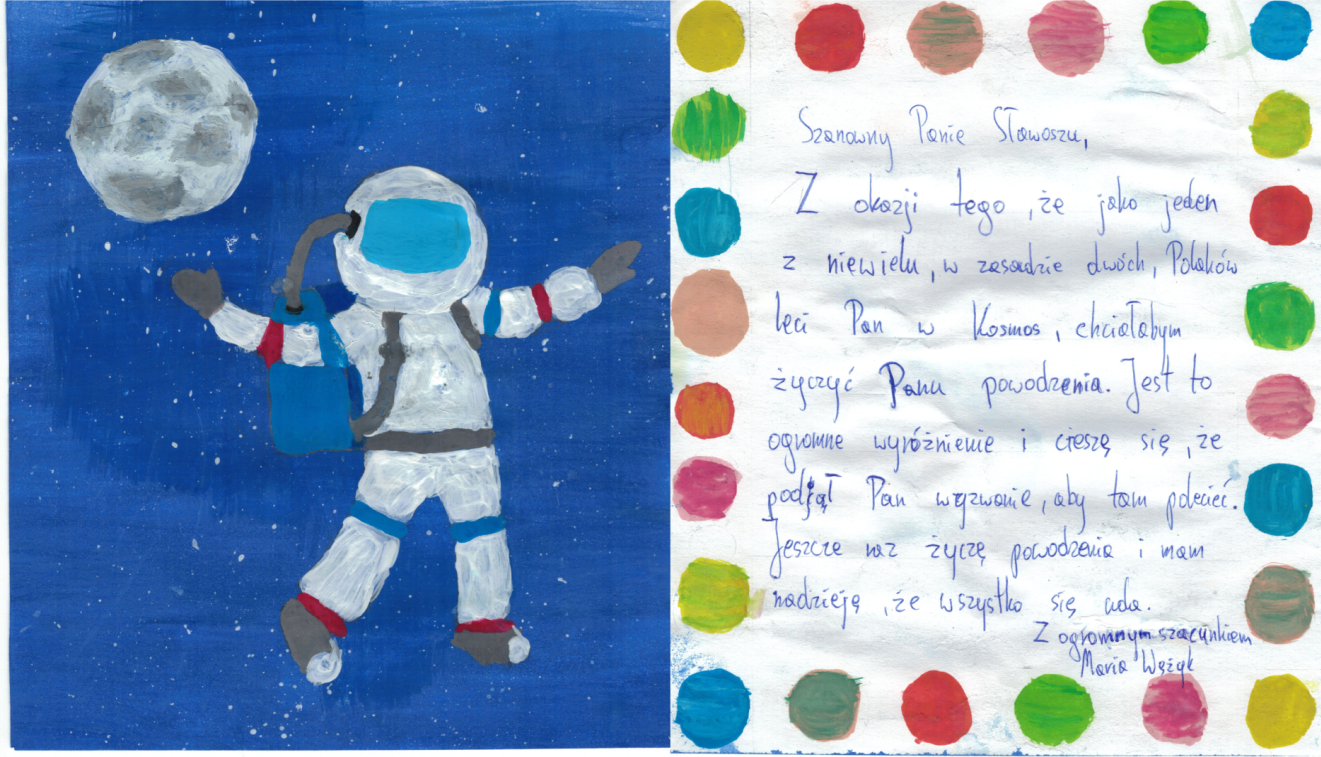 Szanowny Panie Sławoszu,
Z okazji tego, że jako jeden
z niewielu, w zasadzie dwóch, Polaków
leci Pan w Kosmos, chciałabym
życzyć Panu powodzenia. Jest to
ogromne wyróżnienie i cieszę się, że
podjął Pan wyzwanie, aby tam polecieć.
Jeszcze raz życzę powodzenia i mam
nadzieję, że wszystko się uda.
Z ogromnym szacunkiem
Maria Wężyk